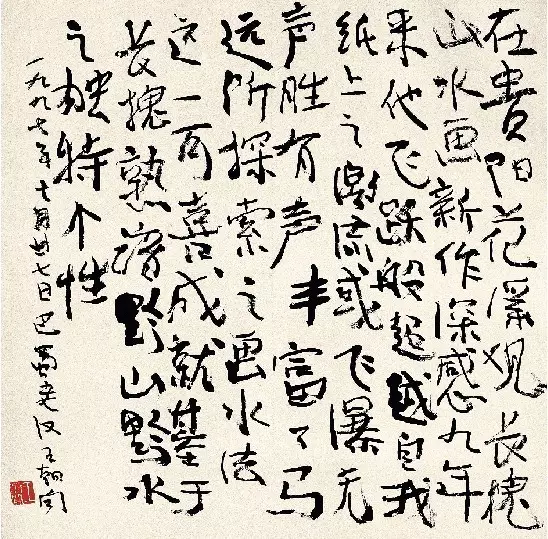 在貴阳花溪观长槐
山水画新作深感九年
来他飞跃般超越自我
纸上之激流或飞瀑无
声胜有声丰富了马
远所探索之画水法
这一可喜成就基于
长槐熟谙黔山黔水
之独特个性
一九九七年十月廿七日巴蜀老汉王朝闻